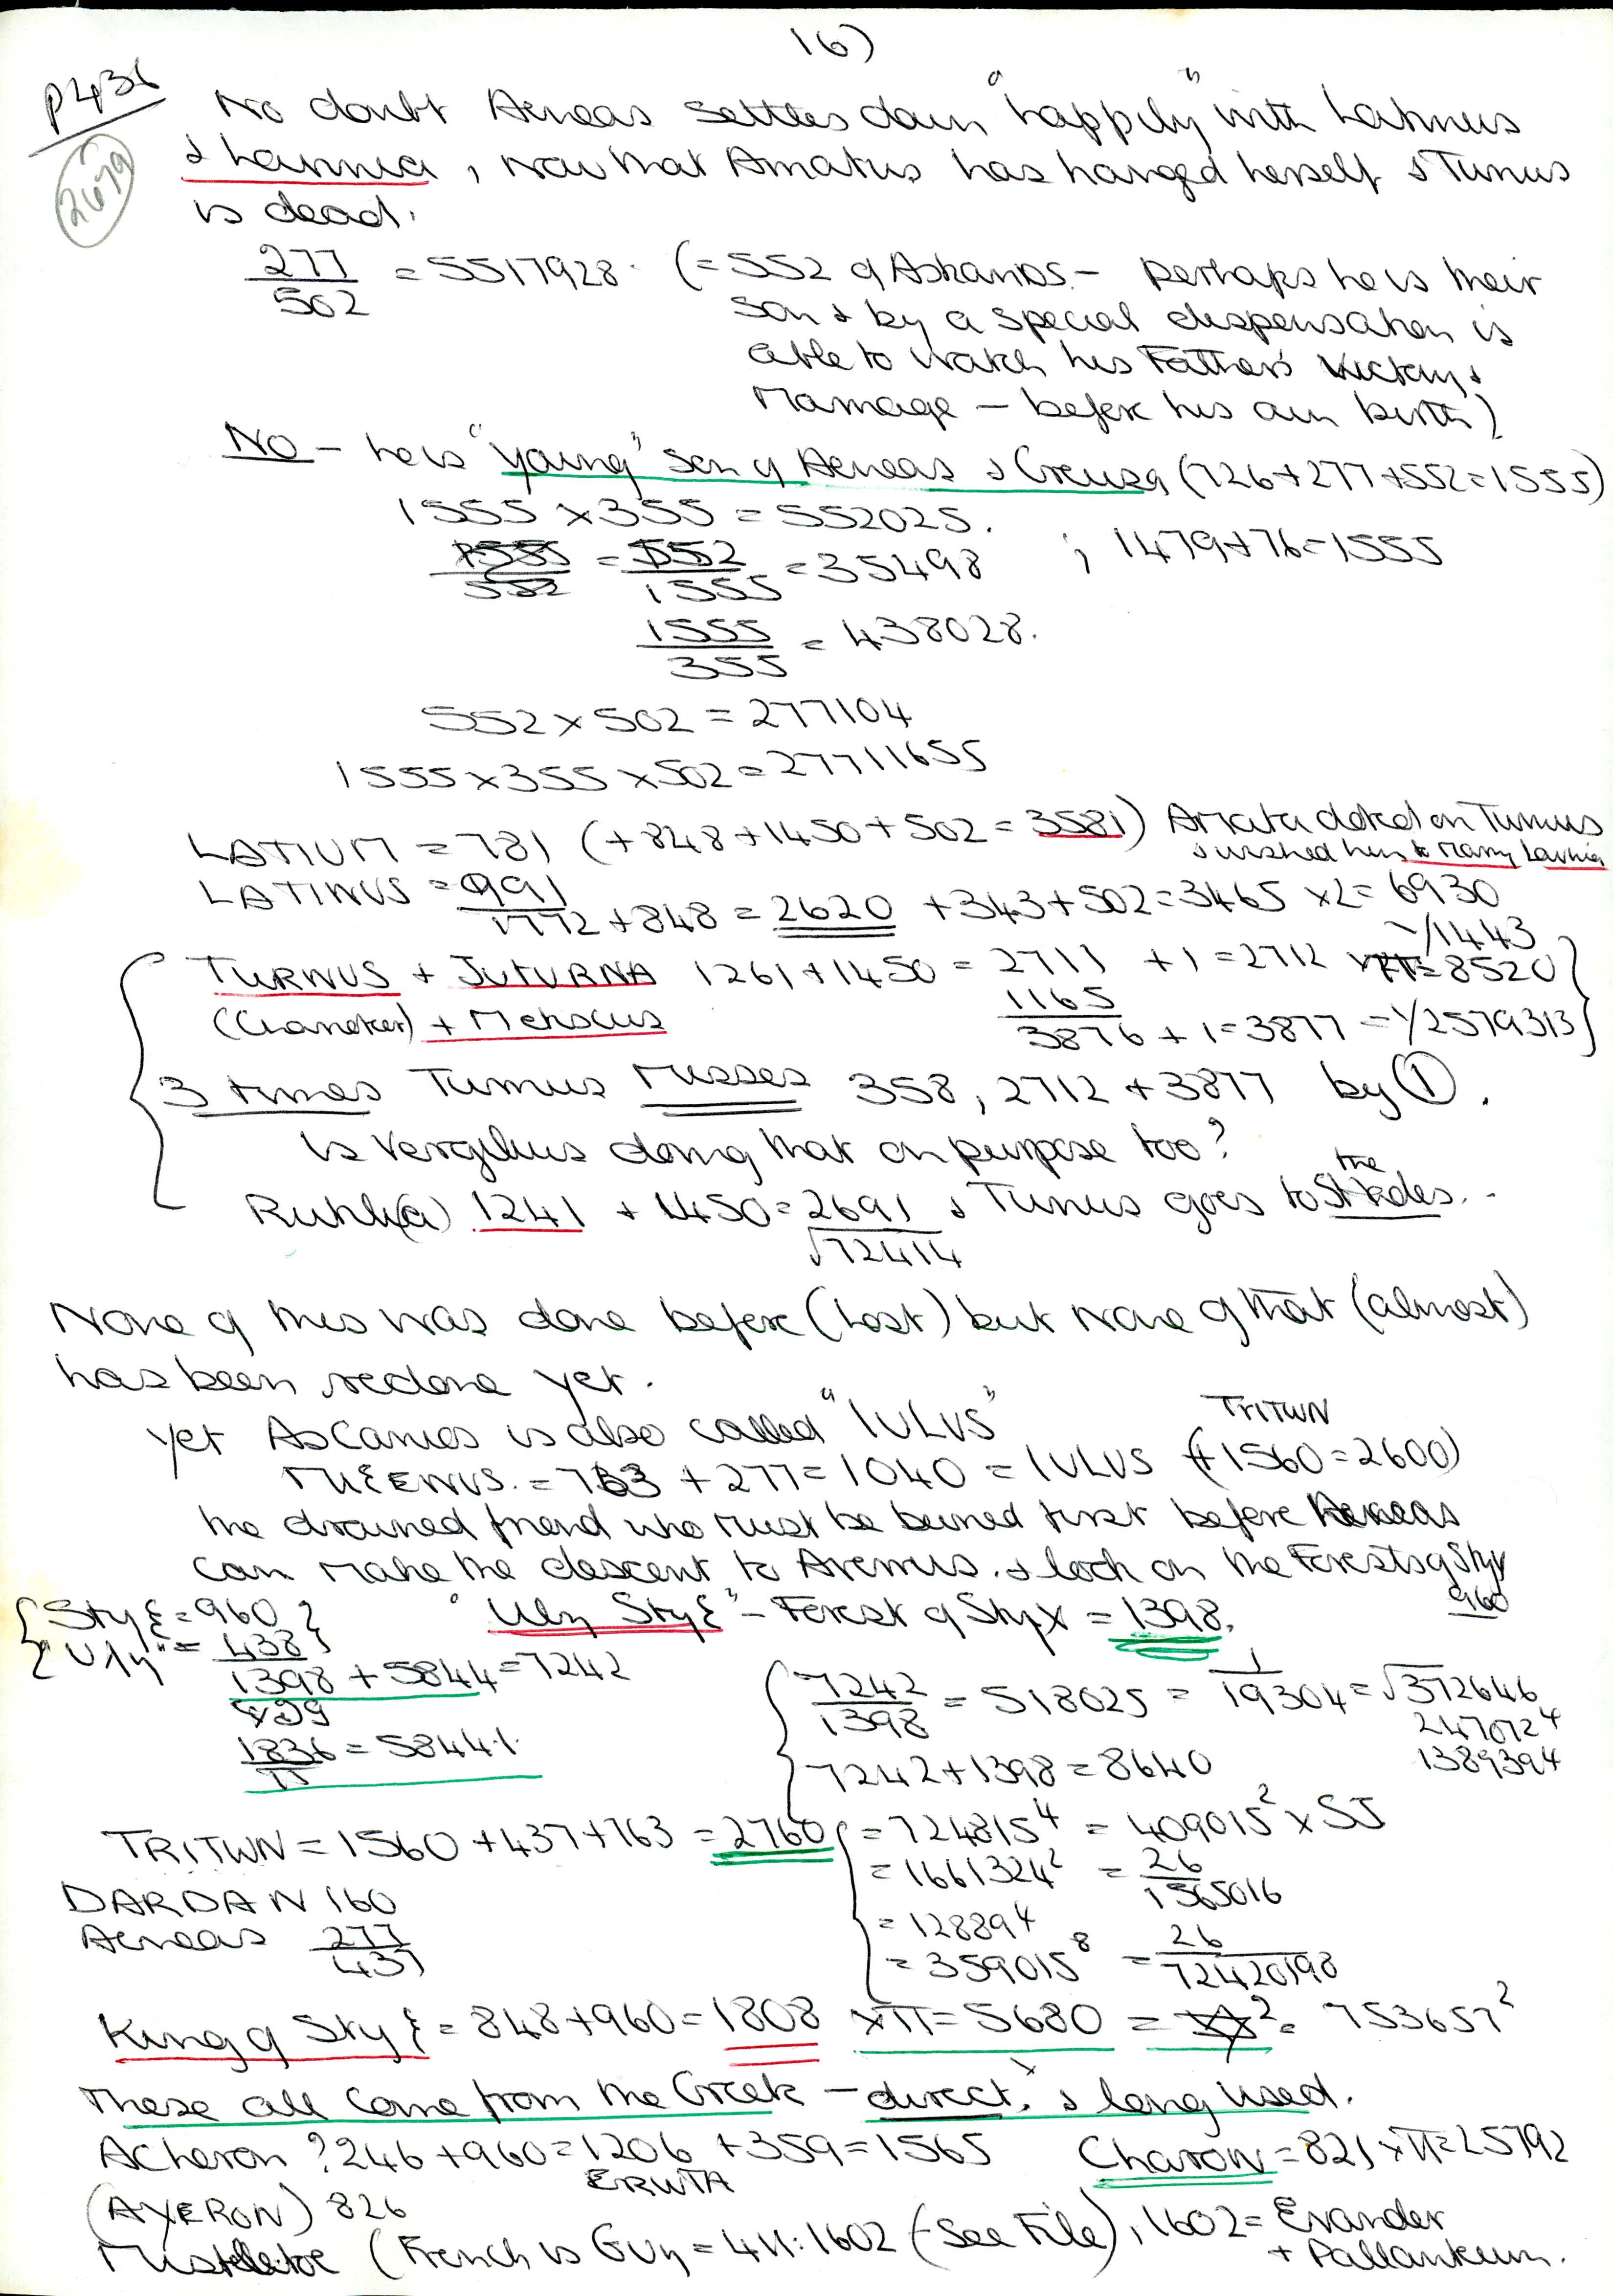 16)
P436
2679
No doubt Aeneas settles down "happily" with Latinus
& Lavinia, now that Amatus has hanged herself & Turnus
is dead.
277/502 = 5517928. (= 552 of Askanios - perhaps he is their
son & by a special dispensation is
able to watch his Father's victory &
Marriage - before his own birth)
NO - he is "young" son of Aeneas & Creusa (726+277+552=1555)
1555 x 355 = 552025.
552/1555 = 35498 ; 1479+76=1555
1555/355 = 438028.
552 x 502 = 277104
1555 x 355 x 502 = 27711655
LATIUM = 781 (+848+1450+502 = 3581) Amata doted on Turnus
& wished him to marry Lavinia
LATINUS = 991
1772 + 848 = 2620 + 343 + 502 = 3465 x 2 = 6930
1/1443
TURNUS + JUTURNA 1261 + 1450 = 2711 + 1 = 2712 xπ = 8520
(Charioteer) + Metiscus 1165
3876 + 1 = 3877 = 1/2579313
3 times Turnus Misses 358, 2712 + 3877 by ①.
Is Vergilius doing that on purpose too?
Rutuli(a) 1241 + 1450 = 2691 & Turnus goes to the Shades..
√72414
None of this was done before (Lost) but none of that (almost)
has been redone yet.
Yet Ascanios is also called "IULUS"
TRITWN
MIξENUS. = 763 + 277 = 1040 = IULUS (+1560 = 2600)
the drowned friend who must be buried first before Aeneas
can make the descent to Avernus. & look on the Forests of Styx
960
{Styξ = 960}
{"Uλη" = 438}
"Uλη Styξ" - Forest of Styx = 1398.
1398 + 5844 = 7242
1836/π = 5844.1.
7242/1398 = 518025 = 1/19304 = √372646
247072⁴
1389394
7242 + 1398 = 8640
TRITWN = 1560 + 437 + 763 = 2760
= 724815⁴ = 409015² x 55
= 1661324² = 26/1565016
= 128894
= 359015⁸ = 26/72420198
DARDAN 160
Aeneas 277
437
King of Styξ = 848 + 960 = 1808 xπ = 5680 = 753657²
These all come from the Greek - direct, & long used.
Acheron ? 246 + 960 = 1206 + 359 = 1565 Charon = 821 xπ = 25792
ERWTA
(AXERON) 826
Mistletoe (French is Guy = 411: 1602 (- See File), 1602 = Evander
+ Pallanteum.